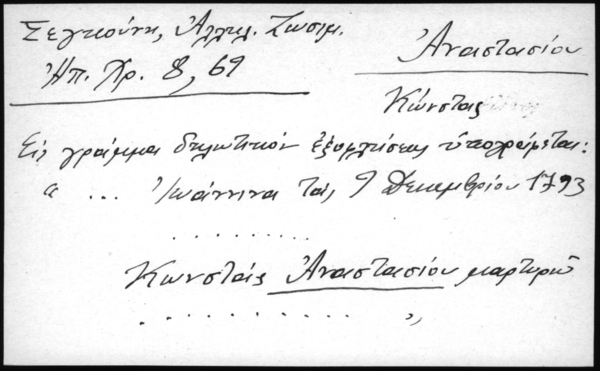 Σεγκούνη, Ἀλληλ. Ζωσιμ.
Ἠπ. Χρ. 8, 69
Ἀναστασίου
Κώνστας
Εἰς γράμμα δηλωτικὸν ἐξοφλήσεως ὑπογράφεται:
“ ... Ἰωάννινα τῇ 9 Δεκεμβρίου 1793
. . . . . . . . .
Κωνστας Ἀναστασίου μαρτυρῶ
. . . . . . . . . . . „